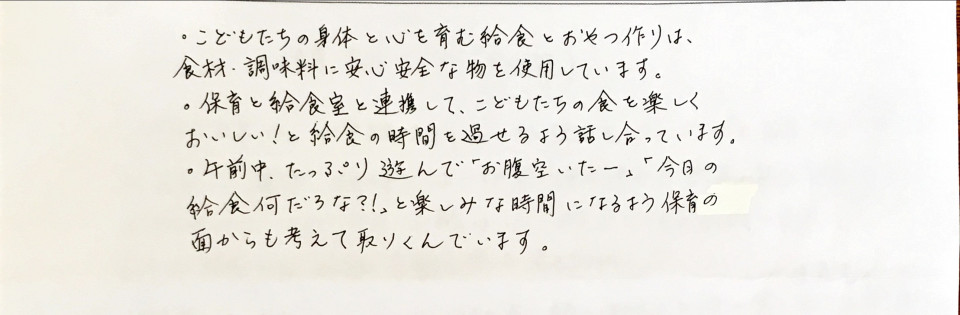 ・こどもたちの身体と心を育む給食とおやつ作りは、
食材・調味料に安心安全な物を使用しています。
・保育と給食室と連携して、こどもたちの食を楽しく
おいしい!と給食の時間を過せるよう話し合っています。
・午前中、たっぷり遊んで「お腹空いたー」「今日の
給食何だろな?!」と楽しみな時間になるよう保育の
面からも考えて取りくんでいます。